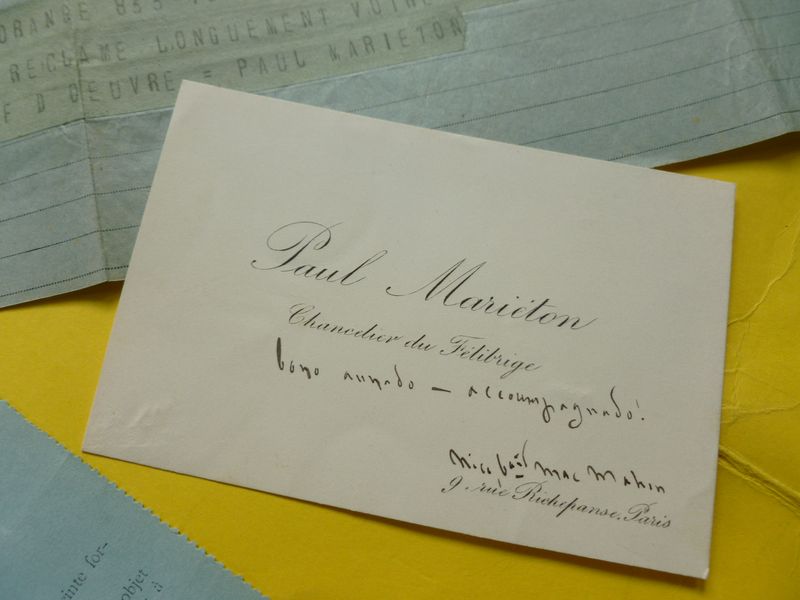 ORANGE 853
RECLAME LONGUEMENT VOTRE
F D OEUVRE = PAUL MARIETON
Paul Mariéton
Chancelier du Félibrige
bono annado — accoumpagnado!
Nice bard Mac Mahon
9, rue Richepanse. Paris
inte for-
objet
à